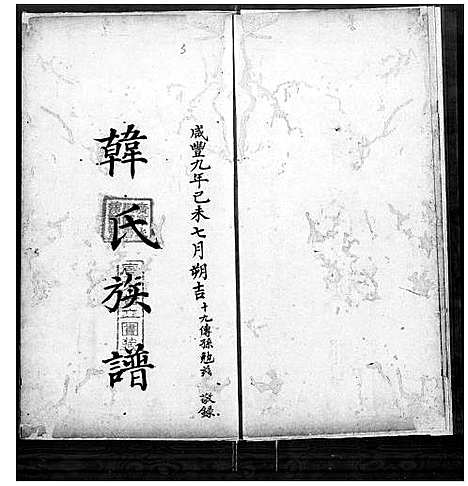 咸豐九年己未七月朔吉十九傳孫勉兹敬錄
韓氏族譜